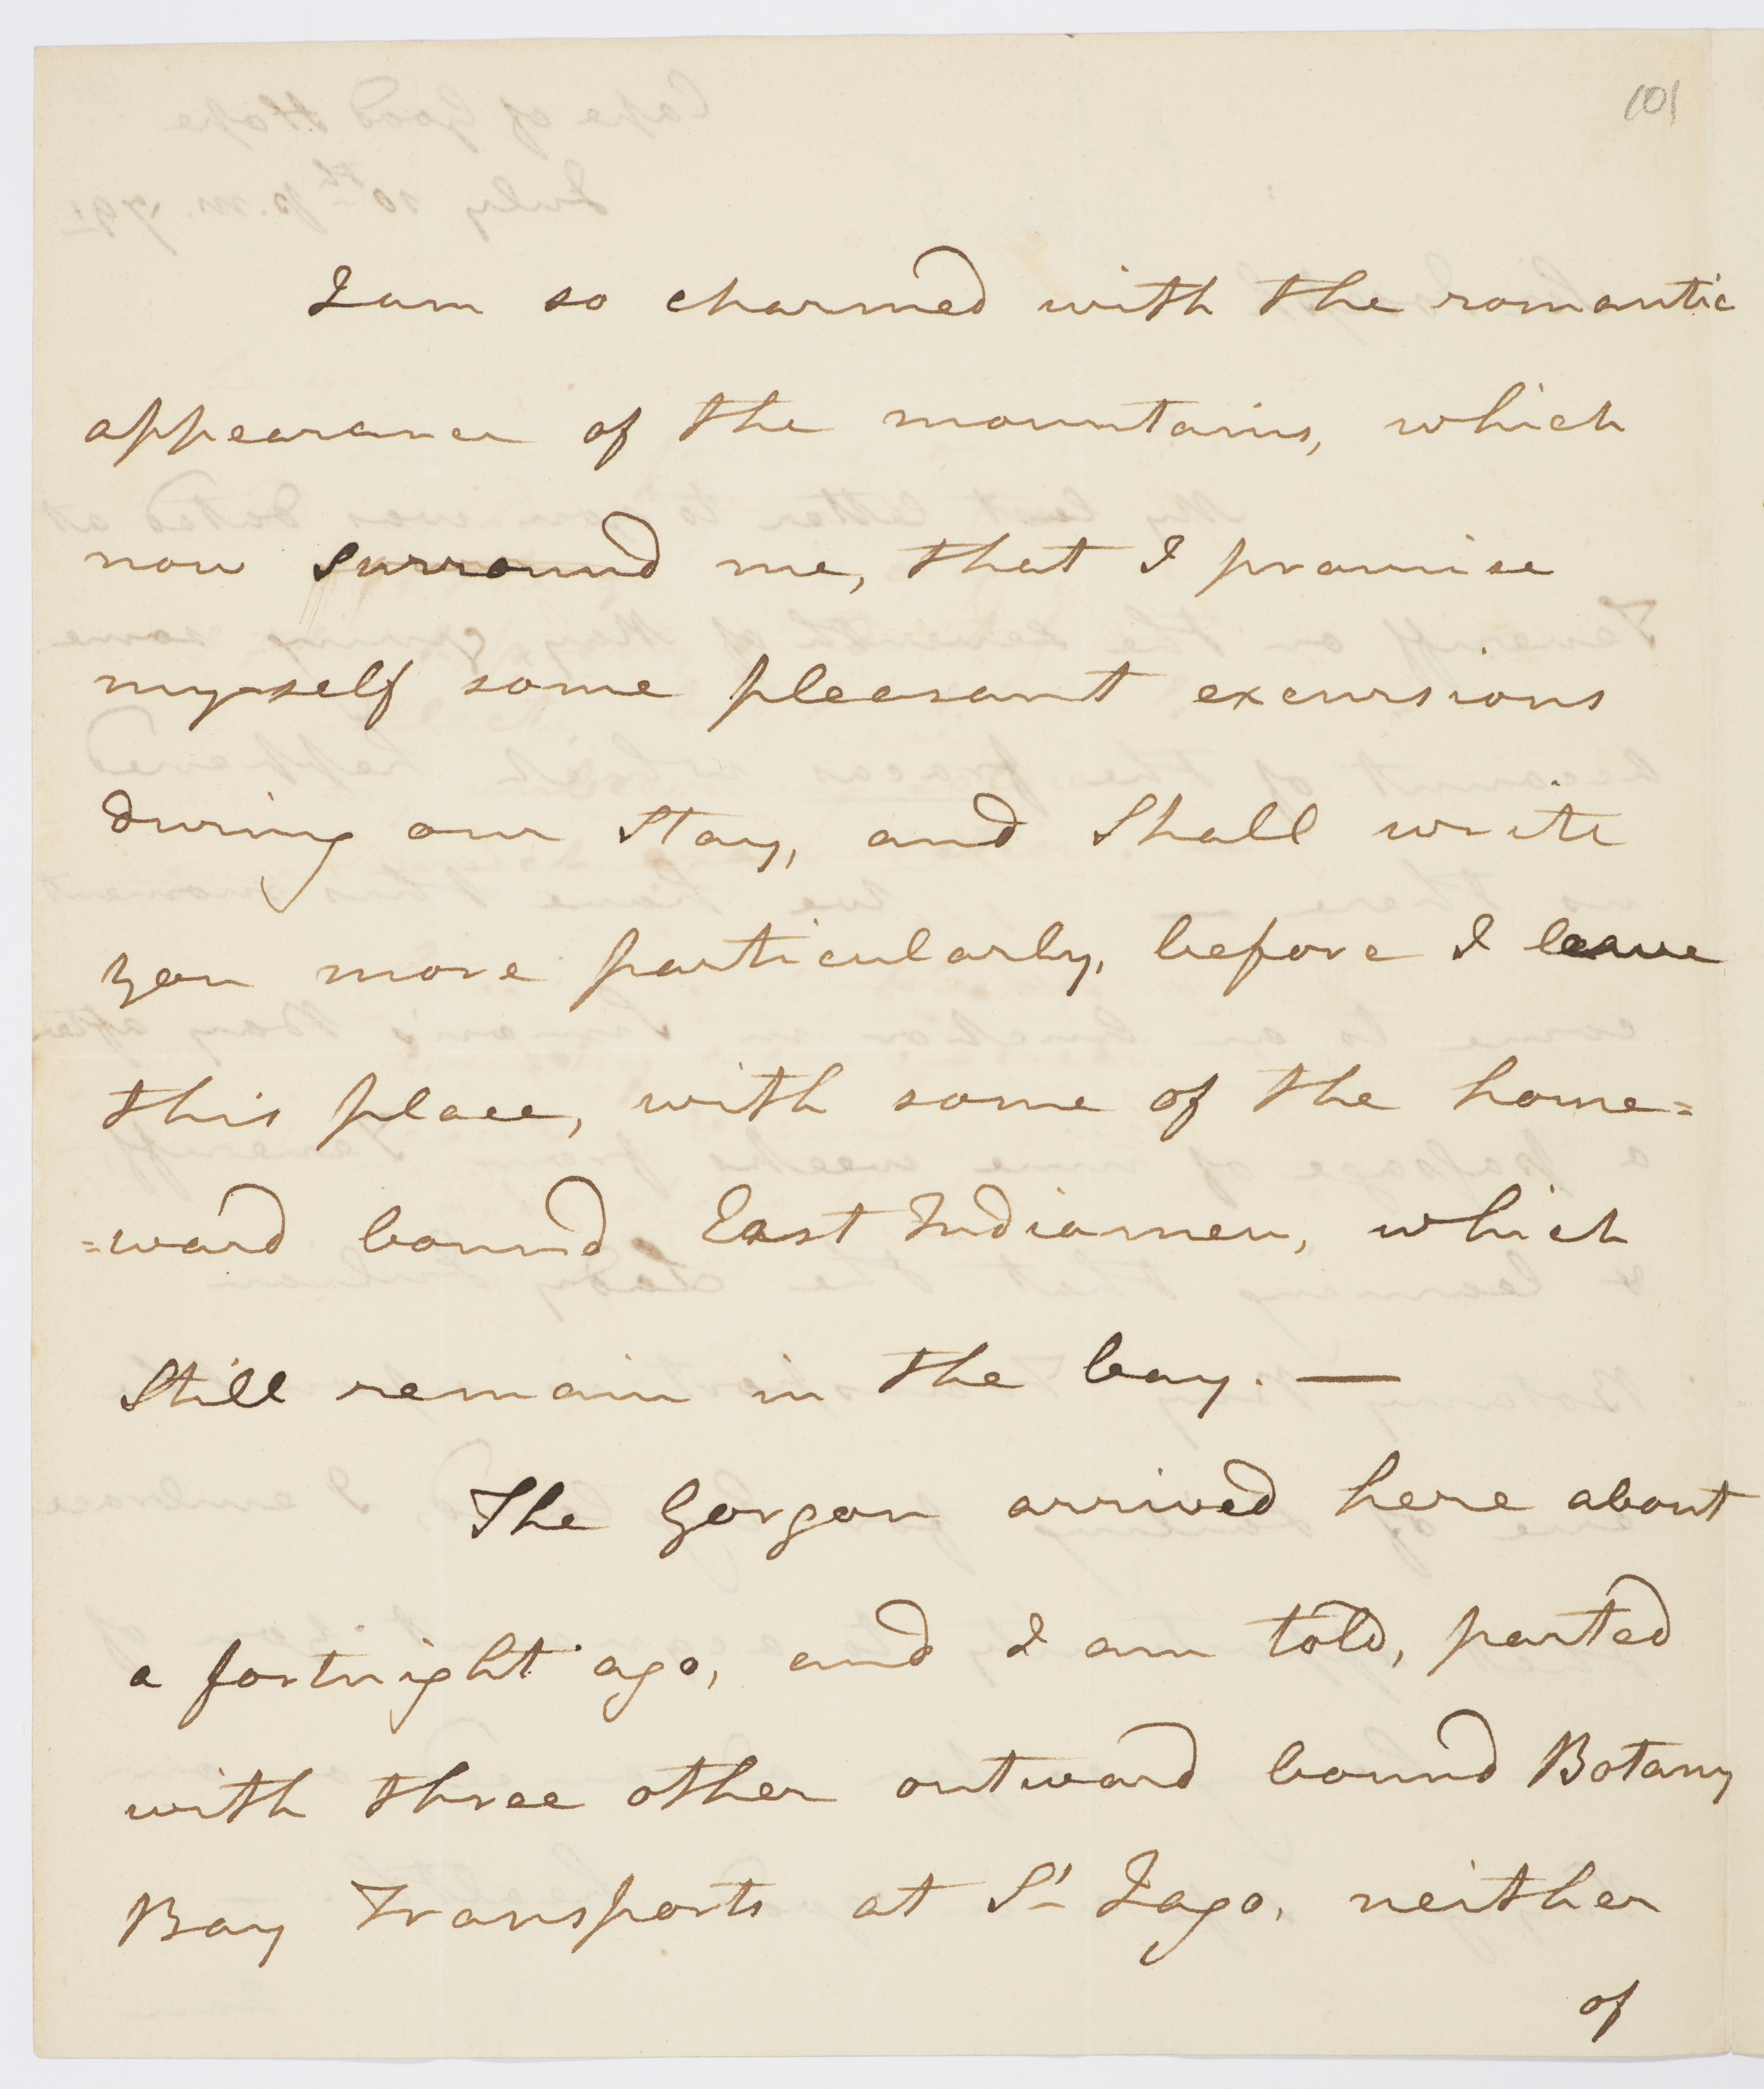 101
I am so charmed with the romantic
appearance of the mountains, which
now surround me, that I promise
myself some pleasant excursions
during our Stay, and Shall write
you more particularly, before I leave
this place, with some of the home=
=ward bound East Indiamen, which
Still remain in the bay. —
The Gorgon arrived here about
a fortnight ago, and I am told, parted
with three other outward bound Botany
Bay Transports at St Iago, neither
of